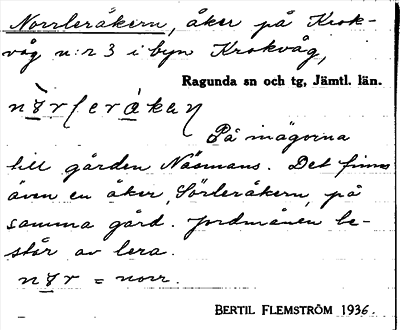 Norrleråkern, åker på Krok-
våg n:r 3 i byn Krokvåg,
Ragunda sn och tg, Jämtl. län.
På inägorna
till gården Näsmans. Det finns
även en åker, Sörleråkern, på
samma gård. Jordmånen be-
står av lera.
= norr.
BERTIL FLEMSTRÖM 1936.